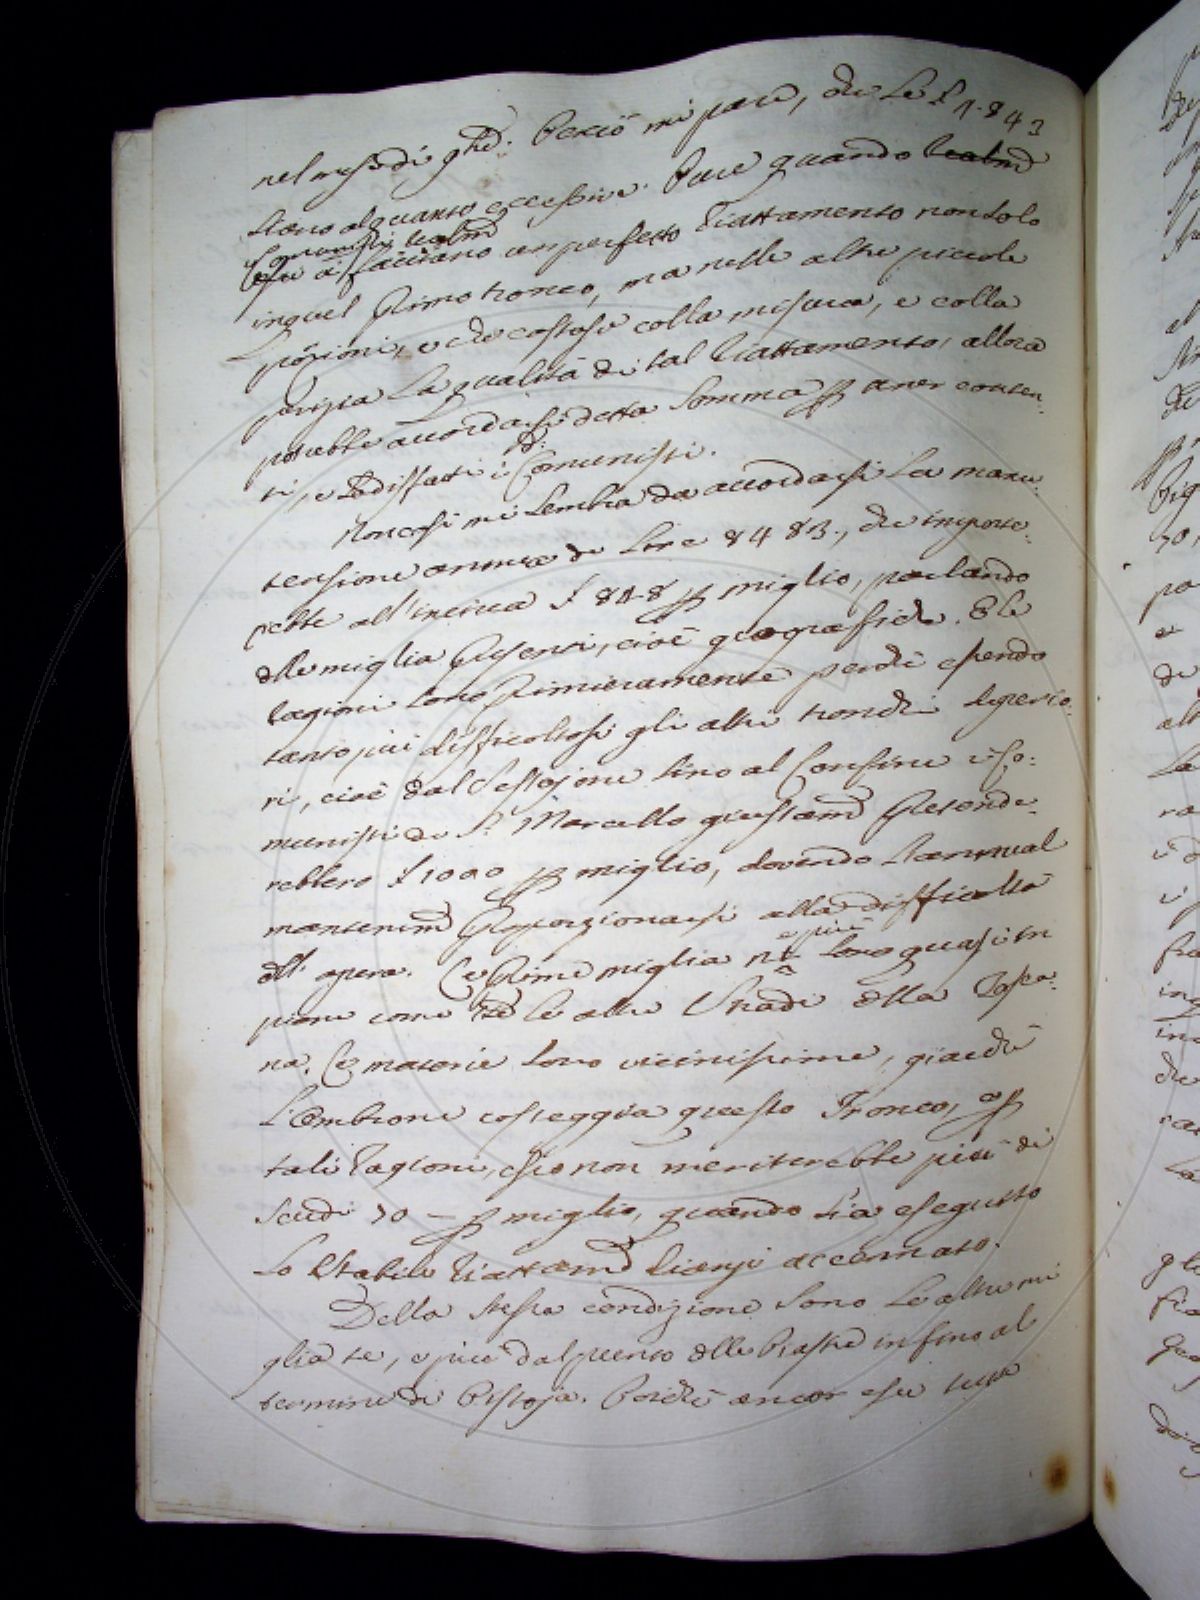 nel mese di Perciò mi pare, che le £ 1843
siano alquanto eccessive. Pure quando realm.
Comunisti realm.
facciano un perfetto riattamento non solo
in quel primo tronco, ma nelle altre piccole
porzioni, e che costasse colla misura, e colla
perizia la qualità di tal riattamento, allora
potrebbe accordarsi detta somma p. aver conten-
ti, e sodisfatti i d. Comunisti.
Non così mi sembra da accordarsi la manu-
tensione annua di Lire 8483., che importe-
rebbe all'incirca £ 848 p. miglio, parlando
delle miglia presenti, cioè geografiche. E le
ragioni sono primieramente perchè essendo
tanto più difficoltosi gli altri tronchi superio-
ri, cioè dal Sestajone sino al Confine i Co-
munisti di S. Marcello giustam. pretende-
rebbero £ 1000 p. miglio, dovendo l'annual
mantenim. proporzionarsi alla difficoltà
dell' opera. Le prime miglia n.
e più
sono quasi in
piano come le altre Strade della Tosca-
na. Le materie sono vicinissime, giacchè
l'Ombrone costeggia questo Tronco, e p.
tali ragioni, esso non meriterebbe più di
Scudi 70 — p. miglio, quando sia eseguito
lo stabile riattam. dianzi accennato.
Della stessa condizione sono le altre mi
glia tre, e più dal punto delle Piastre infino al
termine di Pistoja. Poichè ancor esse